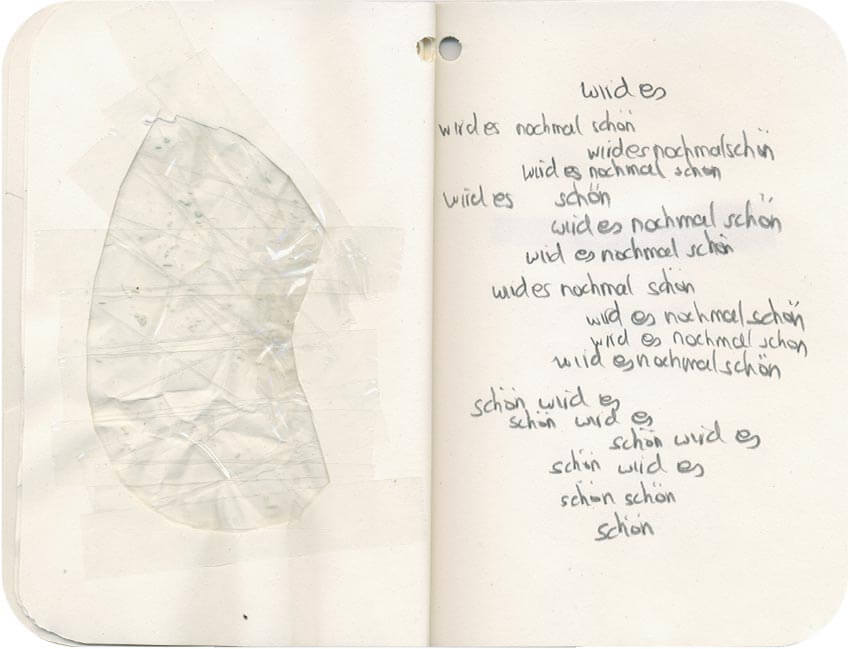 wird es
wird es nochmal schön
wird es nochmal schön
wird es nochmal schön
wird es schön
wird es nochmal schön
wird es nochmal schön
wird es nochmal schön
wird es nochmal schön
wird es nochmal schön
wird es nochmal schön
schön wird es
schön wird es
schön wird es
schön wird es
schön schön
schön